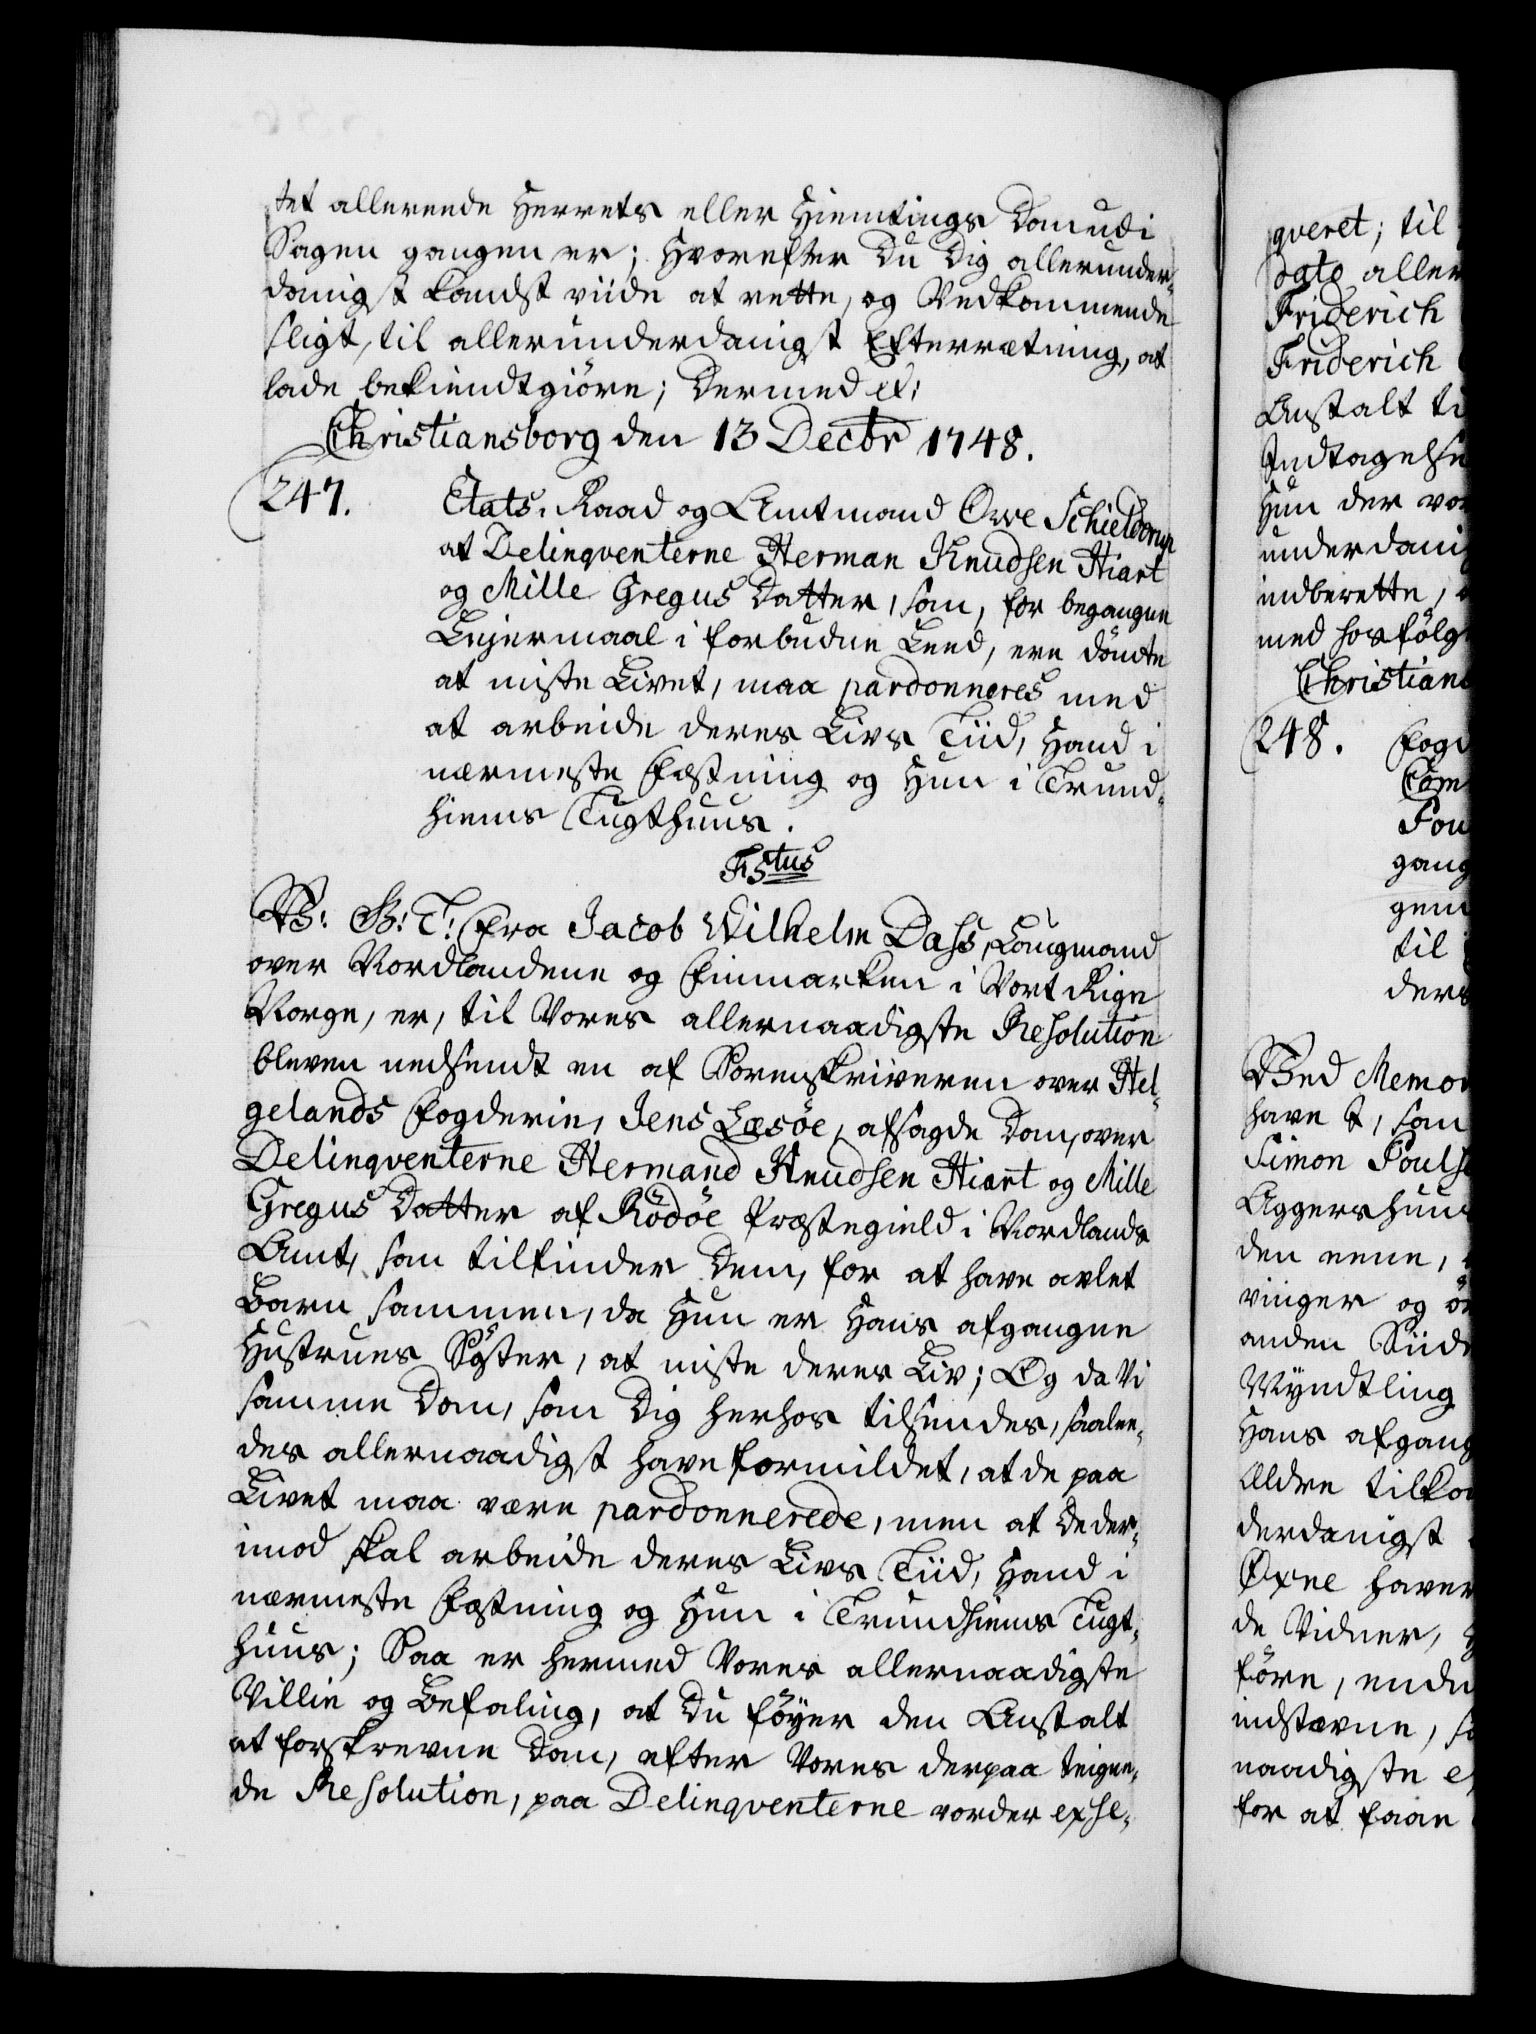 tet allerede Herrets eller Hiemtings Dom udi
Sagen gangen er; Hvorefter Du Dig allerunder-
danigst kandst viide at rette, og Vedkommende
sligt, til allerunderdanigst Efterretning, at
lade bekiendtgiöre; Dermed et:
Christiansborg den 13 Decbr 1748.
247. Etats-Raad og Amtmand Ove Schielderup
at Delinqventerne Herman Knudsen Hiart
og Mille Gregus Datter, som, for begangne
Lejermaal i forbudne Leed, ere dömte
at miste Livet, maa pardonneres med
at arbeide deres Livs Tiid, Hand i
nærmeste Fæstning og Hun i Trund-
hiems Tugthuus.
Fstus
V: G: T: Fra Jacob Wilhelm Dass, Laugmand
over Nordlandene og Finmarken i Vort Rige
Norge, er, til Vores allernaadigste Resolution
bleven nedsendt en af Sorenskriveren over Hel-
gelands Fogderie, Jens Læsöe, afsagde Dom, over
Delinqventerne Hermand Knudsen Hiart og Mille
Gregus Datter af Rödöe Præstegield i Nordlands
Amt, som tilfinder Dem, for at have avlet
Barn sammen, da Hun er Hans afgangne
Hustrues Syster, at miste deres Liv; Og da Vi
samme Dom, som Dig herhos tilsendes, saalee-
des allernaadigst have formildet, at de paa
Livet maa være pardonnerede, men at de der-
imod skal arbeide deres Livs Tiid, Hand i
nærmeste Fæstning og Hun i Trundhiems Tugt-
huus; Saa er hermed Vores allernaadigste
Villie og Befaling, at Du föyer den Anstalt
at forskrevne Dom, efter Vores derpaa teigne-
de Resolution, paa Delinqventerne vorder exse-
qveret; til
dato aller
Friderich
Friderich
Anstalt ti
Indtagelse
Hun der vor
underdanig
indberette,
med hosfölg
Christians
248. Fogd
Com
Pou
gang
gen
til
ders
Ved Memor
have , som
Simon Pouls
Aggershuus
den eene,
vinger og
anden Siide
Myndtling
Hans afgang
Aldre tilkom
derdanigst
Oxne haver
de Vidner,
före, endn
indstævne, s
naadigste
for at faae